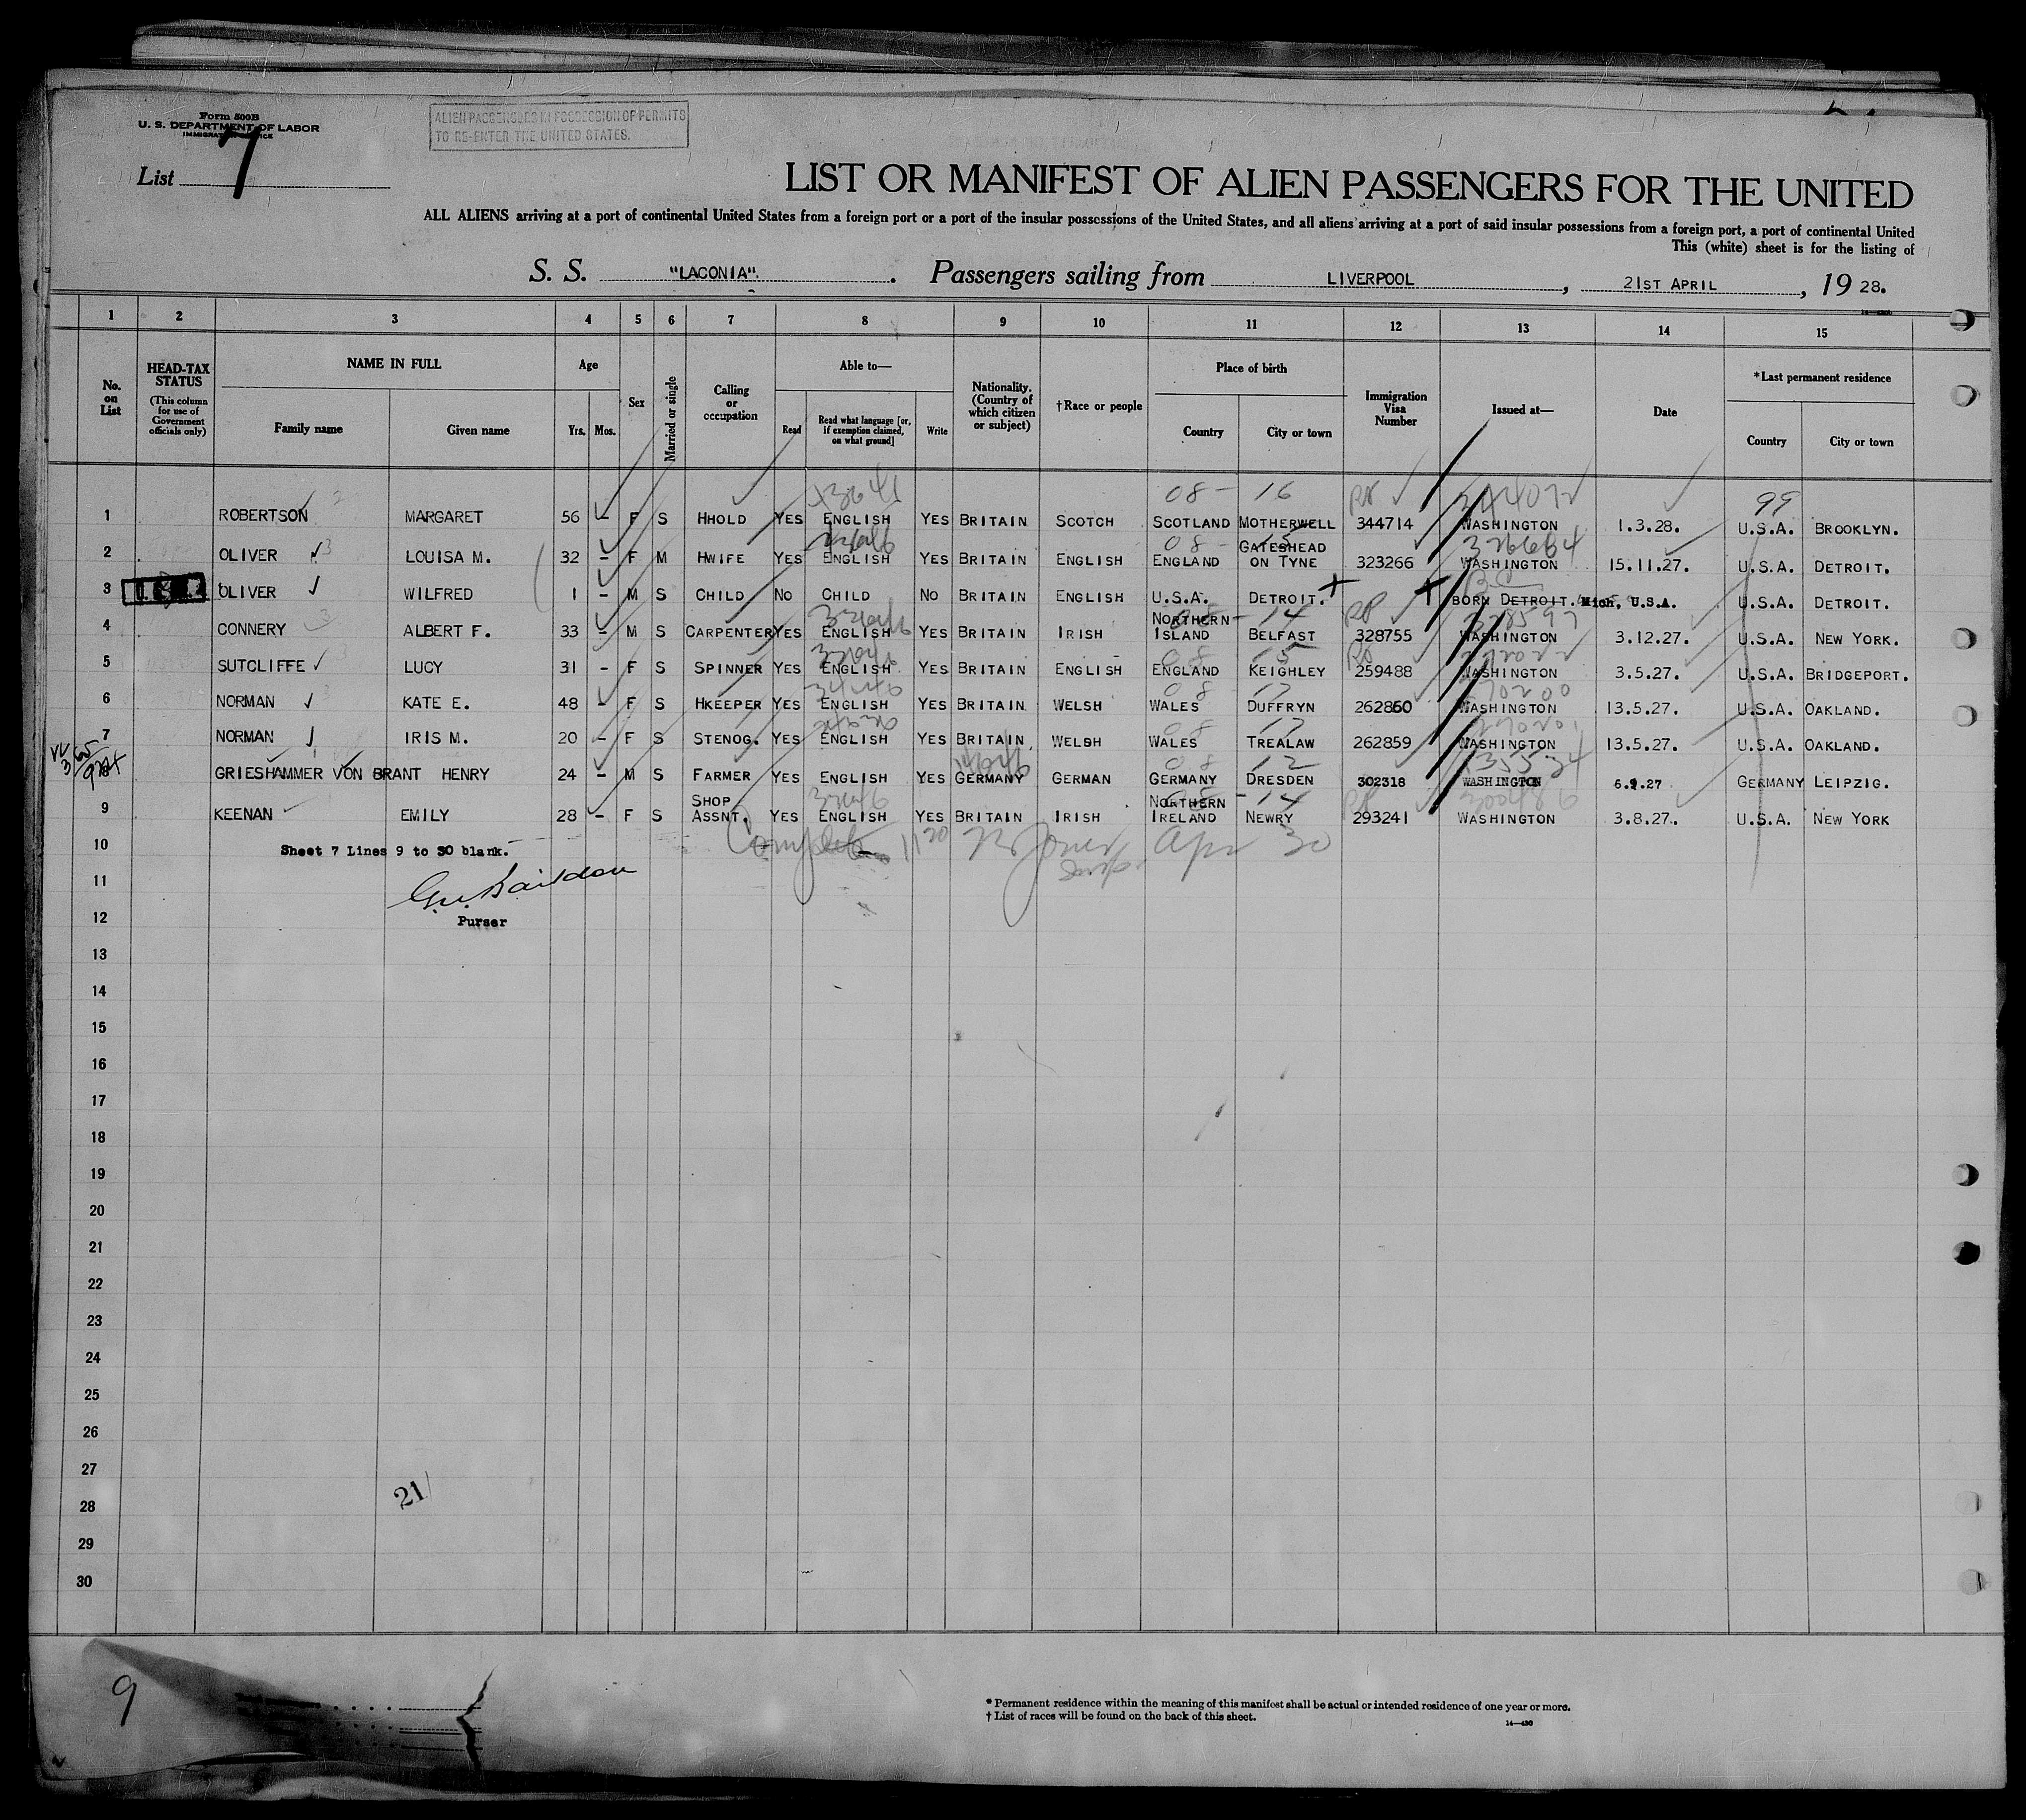 Form 500B
U. S. DEPARTMENT OF LABOR
IMMIGRATION SERVICE
ALIEN PASSENGERS IN POSSESSION OF PERMITS
TO RE-ENTER THE UNITED STATES.
List 7
LIST OR MANIFEST OF ALIEN PASSENGERS FOR THE UNITED
ALL ALIENS arriving at a port of continental United States from a foreign port or a port of the insular possessions of the United States, and all aliens arriving at a port of said insular possessions from a foreign port, a port of continental United
This (white) sheet is for the listing of
S. S. "LACONIA". Passengers sailing from LIVERPOOL, 21ST APRIL, 19 28.
1 2 3 4 5 6 7 8 9 10 11 12 13 14 15
No. on List
HEAD-TAX STATUS (This column for use of Government officials only)
NAME IN FULL Family name Given name
Age Yrs. Mos.
Sex
Married or single
Calling or occupation
Able to— Read Read what language [or, if exemption claimed, on what ground] Write
Nationality. (Country of which citizen or subject)
†Race or people
Place of birth Country City or town
Immigration Visa Number
Issued at—
Date
*Last permanent residence Country City or town
08 - 16 99
1 ROBERTSON MARGARET 56 – F S HHOLD YES ENGLISH YES BRITAIN SCOTCH SCOTLAND MOTHERWELL 344714 WASHINGTON 1.3.28. U.S.A. BROOKLYN.
2 OLIVER LOUISA M. 32 – F M HWIFE YES ENGLISH YES BRITAIN ENGLISH ENGLAND GATESHEAD ON TYNE 323266 WASHINGTON 15.11.27. U.S.A. DETROIT.
3 OLIVER WILFRED 1 – M S CHILD NO CHILD NO BRITAIN ENGLISH U.S.A. DETROIT. BORN DETROIT. Mich, U.S.A. U.S.A. DETROIT.
4 CONNERY ALBERT F. 33 – M S CARPENTER YES ENGLISH YES BRITAIN IRISH NORTHERN ISLAND BELFAST 328755 WASHINGTON 3.12.27. U.S.A. NEW YORK.
5 SUTCLIFFE LUCY 31 – F S SPINNER YES ENGLISH YES BRITAIN ENGLISH ENGLAND KEIGHLEY 259488 WASHINGTON 3.5.27. U.S.A. BRIDGEPORT.
6 NORMAN KATE E. 48 – F S HKEEPER YES ENGLISH YES BRITAIN WELSH WALES DUFFRYN 262860 WASHINGTON 13.5.27. U.S.A. OAKLAND.
7 NORMAN IRIS M. 20 – F S STENOG. YES ENGLISH YES BRITAIN WELSH WALES TREALAW 262859 WASHINGTON 13.5.27. U.S.A. OAKLAND.
GRIESHAMMER VON BRANT HENRY 24 – M S FARMER YES ENGLISH YES GERMANY GERMAN GERMANY DRESDEN 302318 WASHINGTON 6.9.27 GERMANY LEIPZIG.
9 KEENAN EMILY 28 – F S SHOP ASSNT. YES ENGLISH YES BRITAIN IRISH NORTHERN IRELAND NEWRY 293241 WASHINGTON 3.8.27. U.S.A. NEW YORK
10 Sheet 7 Lines 9 to 30 blank. Complete 1120 Jones Apr 30
11
12 Purser
13
14
15
16
17
18
19
20
21
22
23
24
25
26
27
28 21
29
30
9
* Permanent residence within the meaning of this manifest shall be actual or intended residence of one year or more.
† List of races will be found on the back of this sheet.
14—430